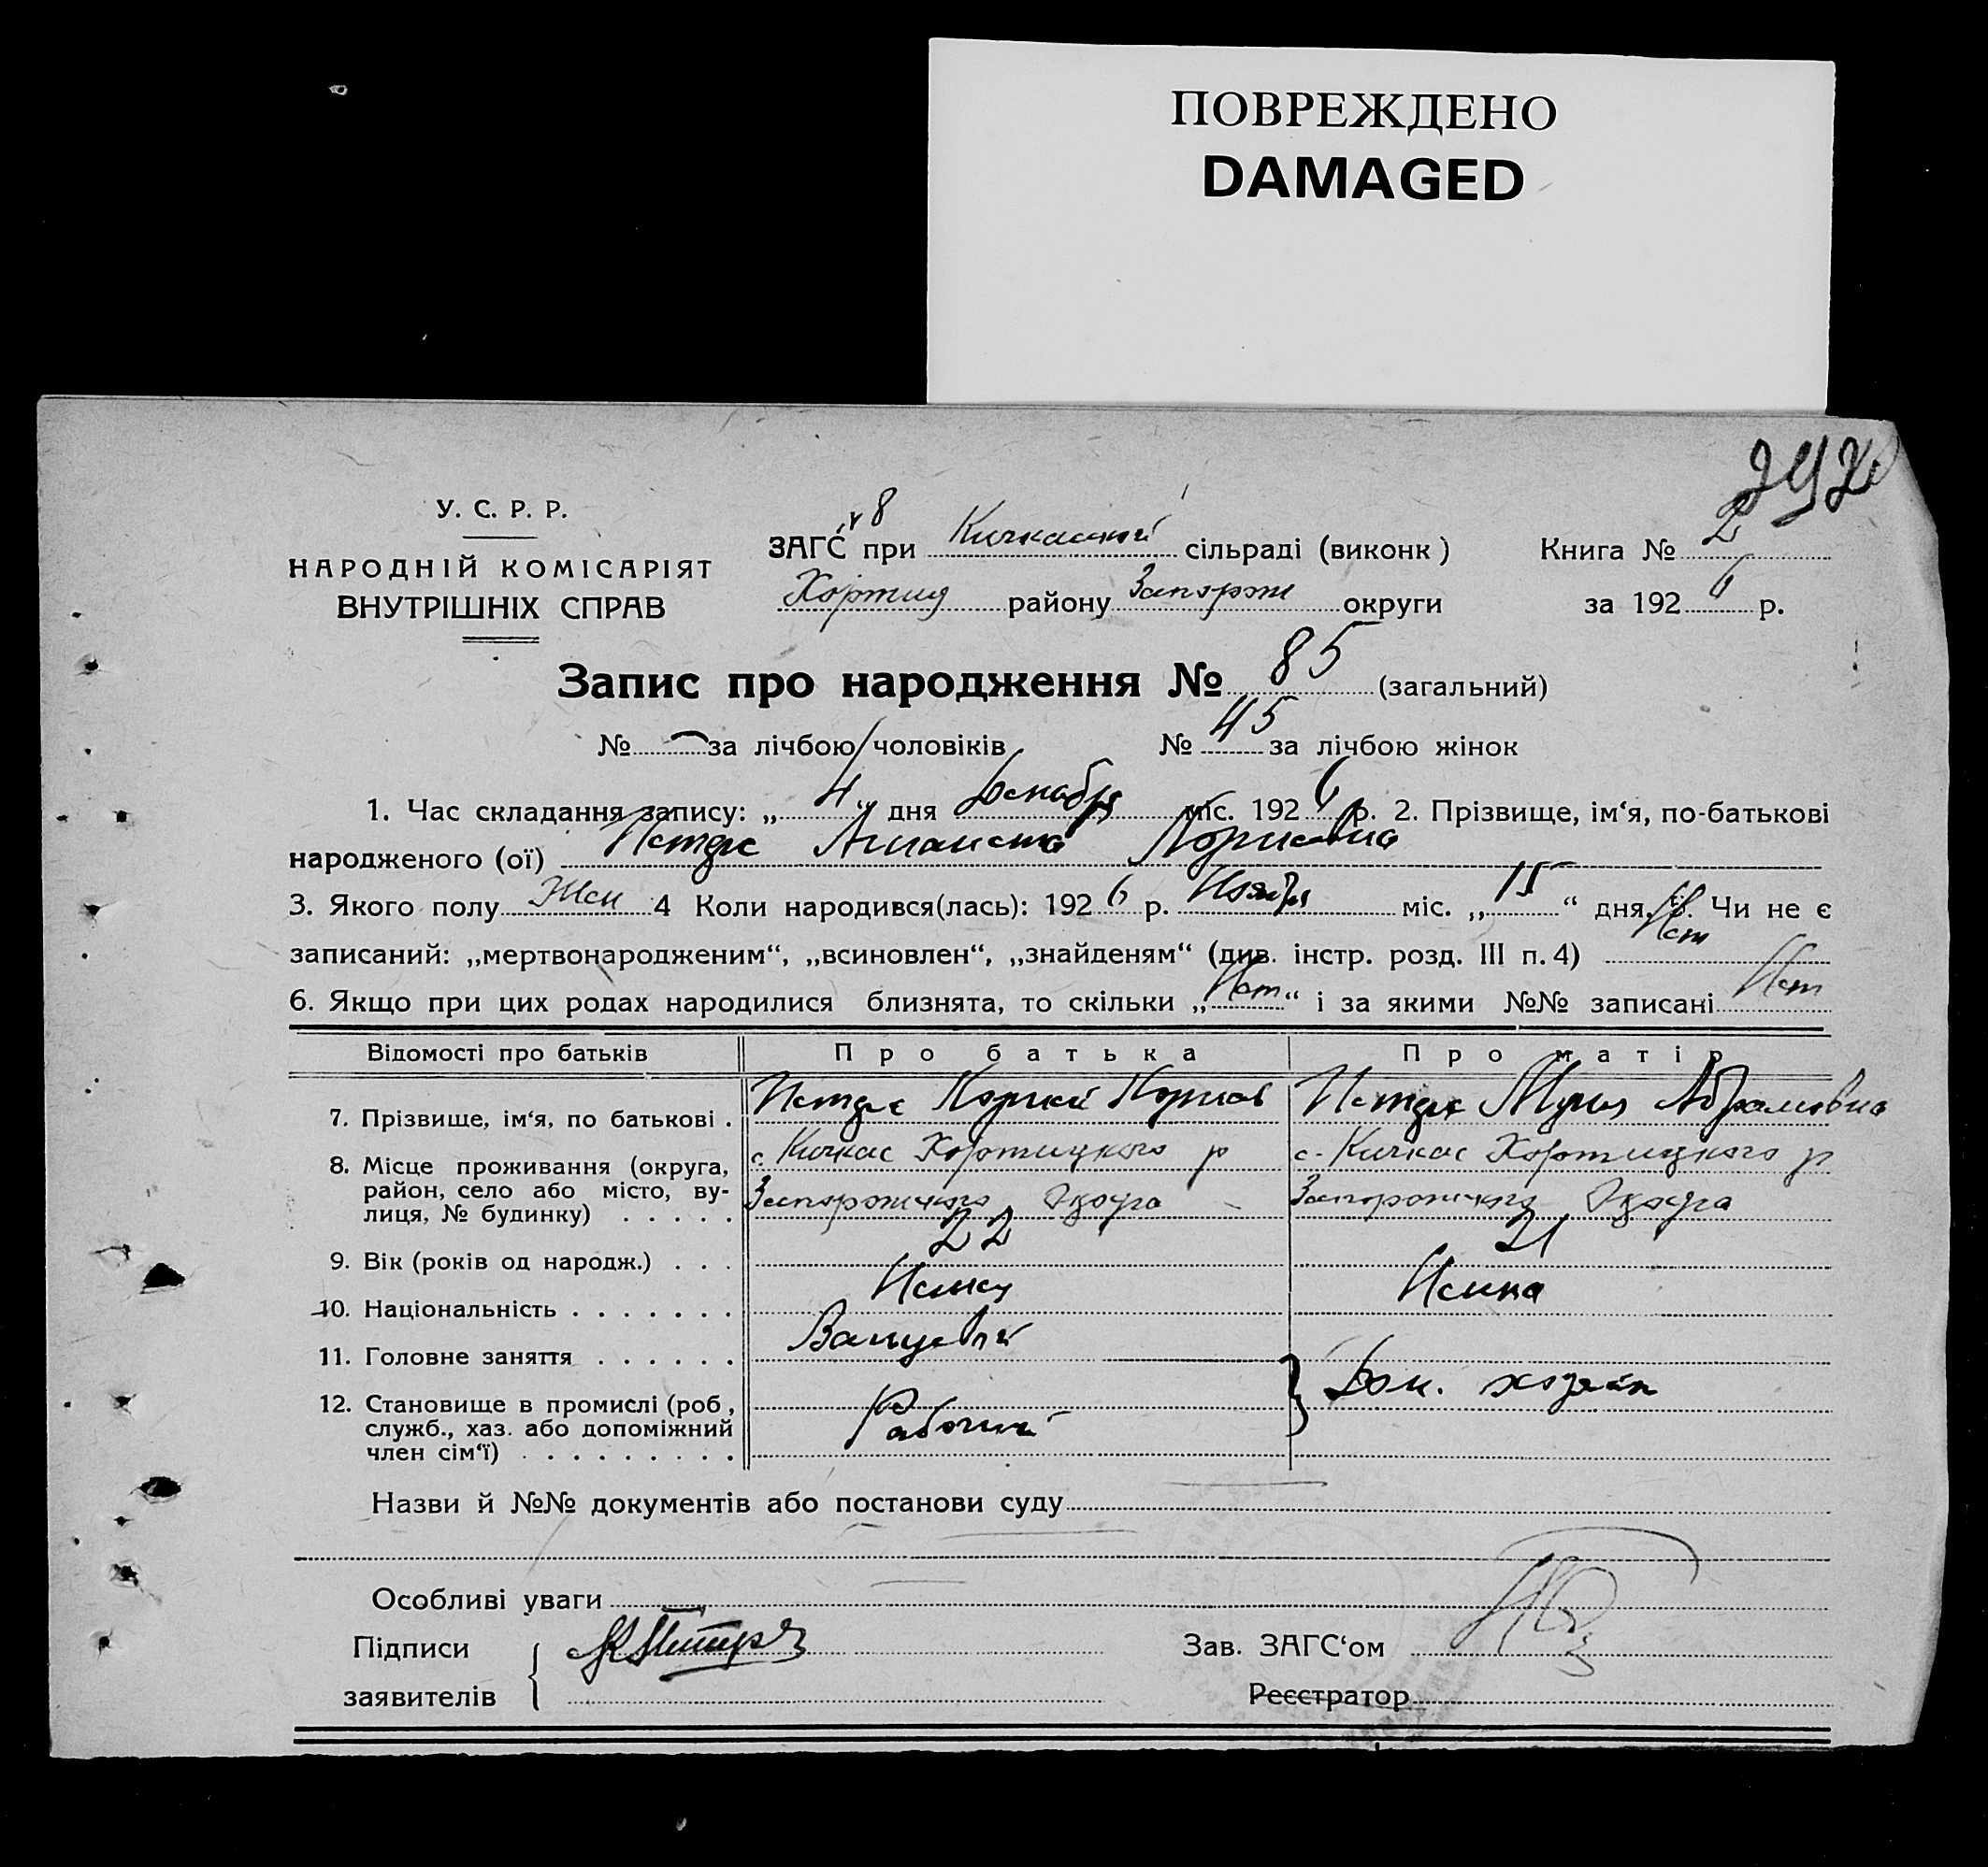 ПОВРЕЖДЕНО
DAMAGED
У. С. Р. Р.
НАРОДНІЙ КОМІСАРІЯТ
ВНУТРІШНІХ СПРАВ
8
ЗАГС при Кичкасской сільраді (виконк)
Хортиц району Запорож округи
Книга № 2
за 1926 р.
Запис про народження № 85 (загальний)
№ — за лічбою чоловіків № 45 за лічбою жінок
1. Час складання запису: „ 4 „ дня Декабря міс. 1926 р. 2. Прізвище, ім‘я, по-батькові
народженого (ої)
3. Якого полу Жен 4 Коли народився(лась): 1926 р. Ноября міс. „ 15 “ дня. 5. Чи не є
записаний: „мертвонародженим“, „всиновлен“, „знайденям“ (див. інстр. розд. III п. 4) Нет
6. Якщо при цих родах народилися близнята, то скільки „ Нет “ і за якими №№ записані Нет
Відомості про батьків Про батька Про матір
7. Прізвище, ім‘я, по батькові . Абрамовна
8. Місце проживання (округа, с. Кичкас Хортицкого р с. Кичкас Хортицкого р
район, село або місто, ву-
лиця, № будинку) . . . . . Запорожского Округа Запорожского Округа
9. Вік (років од народж.) . . . 22 21
10. Національність . . . . . . . Немец Немка
11. Головне заняття . . . . . . Вальцевой
12. Становище в промислі (роб, Рабочий Дом. хозяйк
служб., хаз. або допоміжний
член сім‘ї) . . . . . . . . .
Назви й №№ документів або постанови суду
Особливі уваги
Підписи
заявителів
Зав. ЗАГС‘ом
Реєстратор